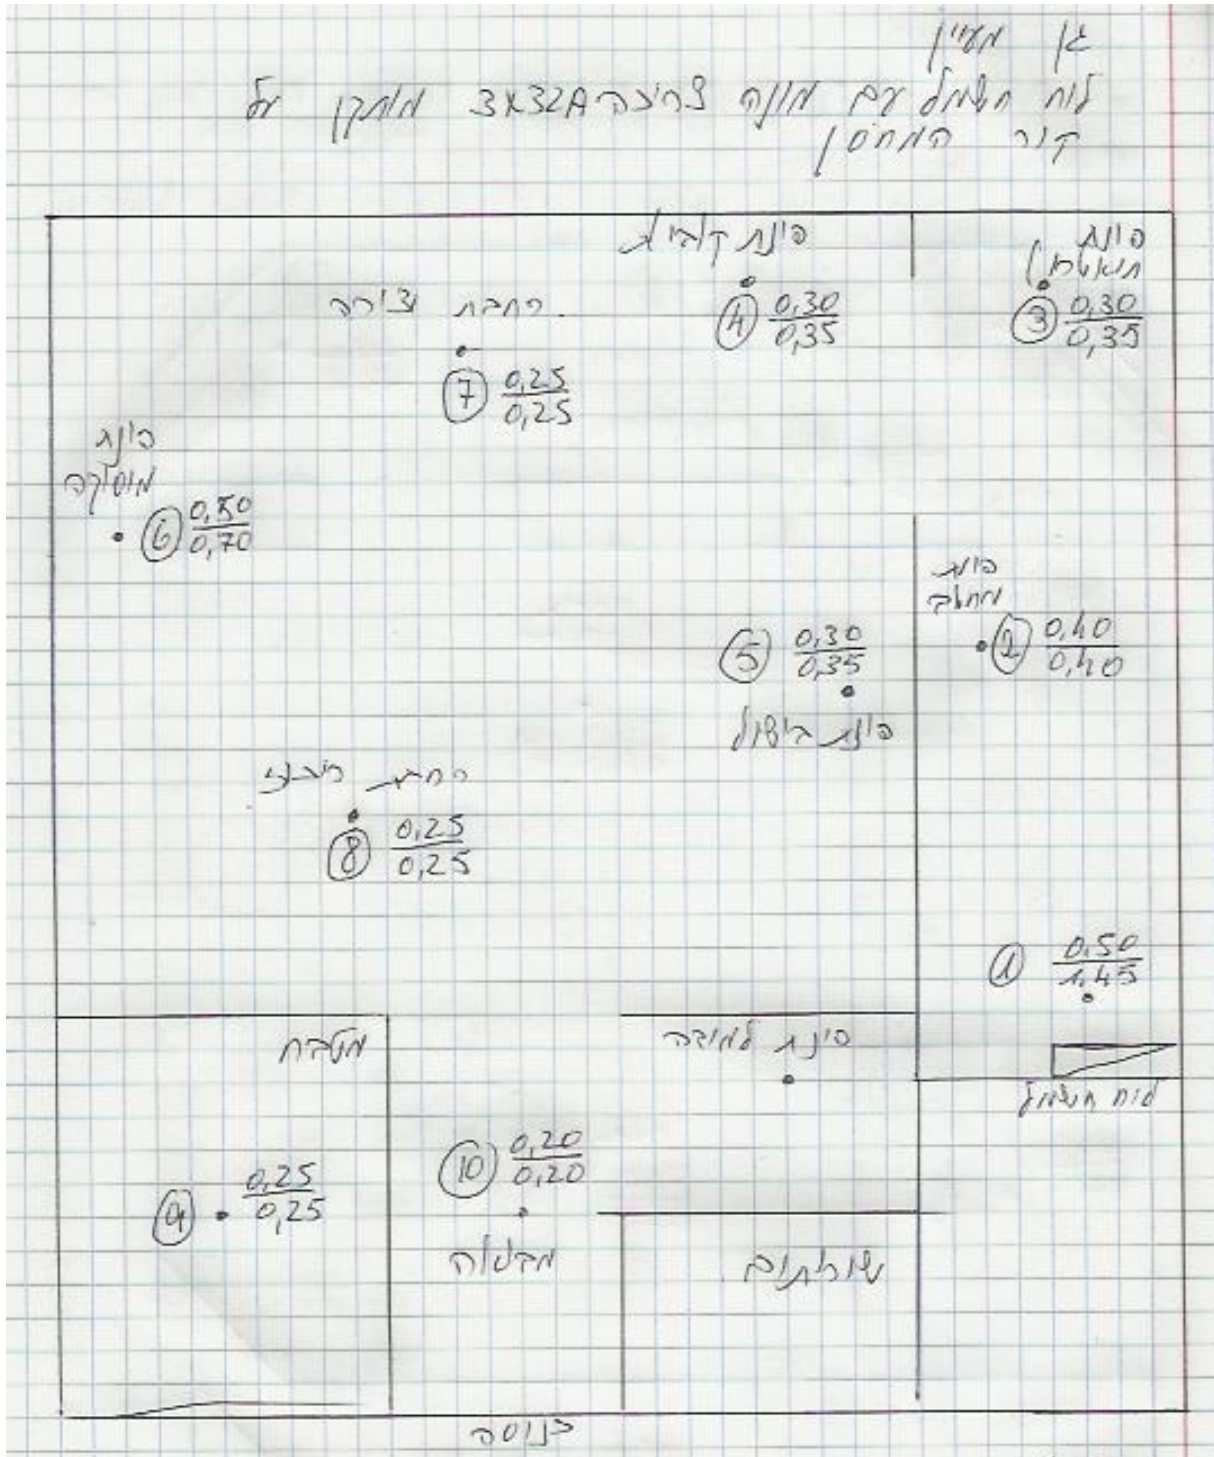 גן מעיין
לוח חשמל עם מונה צריכה 3x32A מותקן על
קיר המחסן
פינת
תיאטרון
③ 0,30
0,35
פינת קוביות
④ 0,30
0,35
רחבת יצירה
⑦ 0,25
0,25
פינת
מוסיקה
⑥ 0,50
0,70
פינת
מחשב
② 0,40
0,40
⑤ 0,30
0,35
פינת בישול
רחבת ריכוז
⑧ 0,25
0,25
① 0,50
1,45
לוח חשמל
פינת למידה
מטבח
⑩ 0,20
0,20
מבואה
⑨ 0,25
0,25
שירותים
כניסה